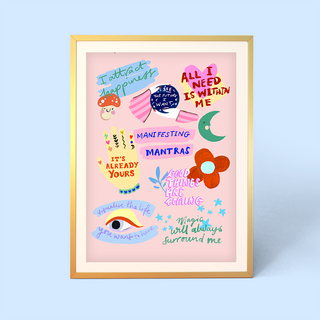 I attract
happiness
ALL I
NEED
IS WITHIN
ME
I SEE
THE FUTURE
I
WANT
MANIFESTING
MANTRAS
IT'S
ALREADY
YOURS
GOOD
THINGS
ARE
COMING
visualise the life
you want to have
Magic
will always
surround me